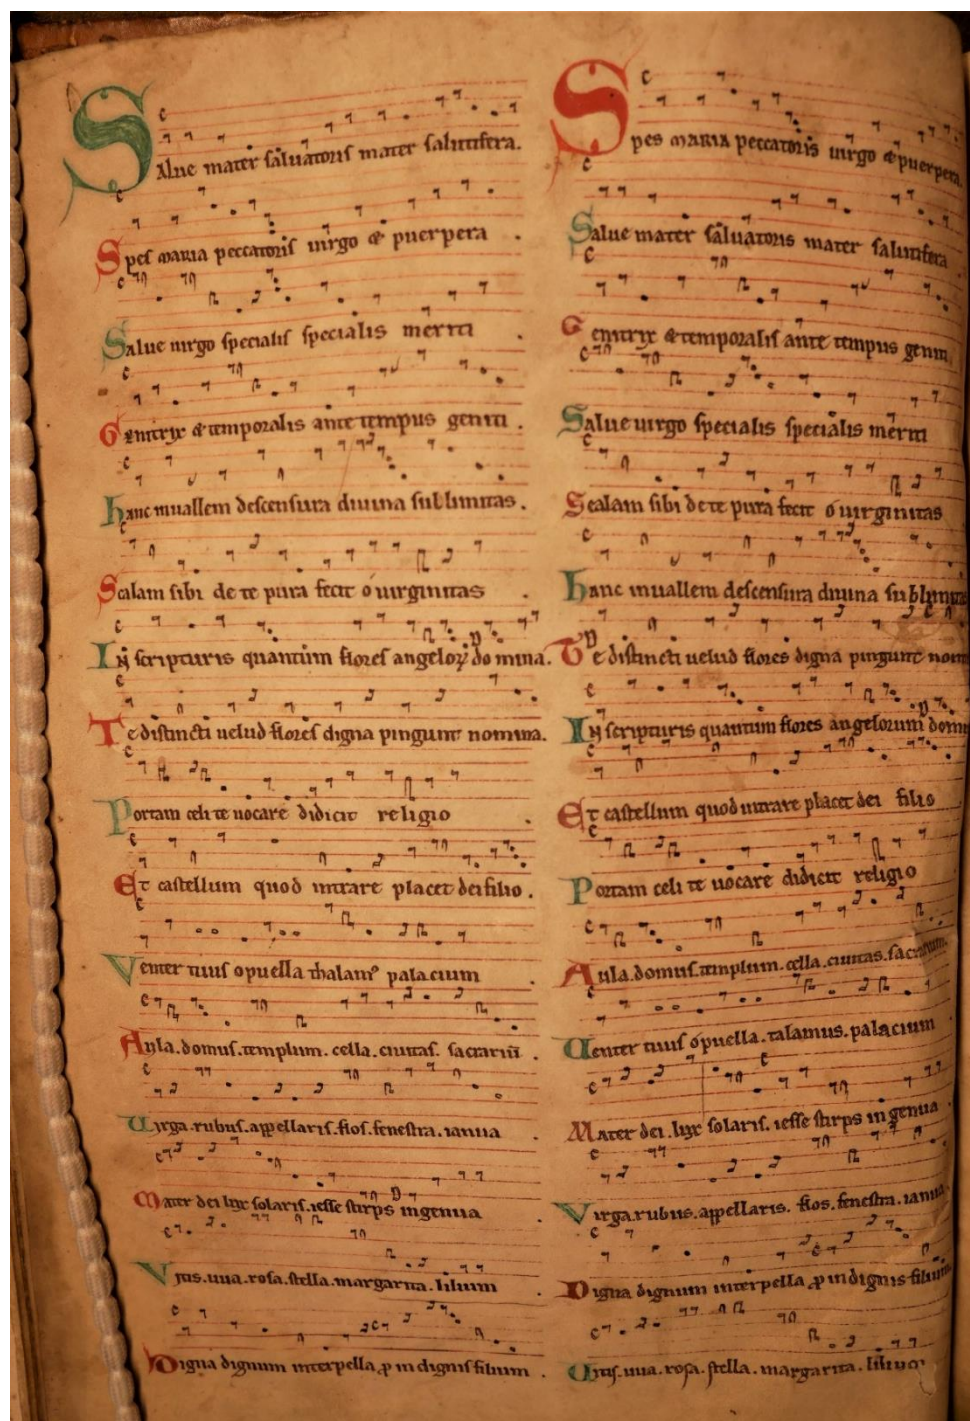 Salue mater saluatoris mater salutifera.
Spes maria peccatoris uirgo & puerpera .
Salue uirgo specialis specialis meriti .
Genitrix & temporalis ante tempus geniti .
hanc inuallem descensura diuina sublimitas .
Scalam sibi de te pura fecit o uirginitas .
IN scripturis quantum flores angeloꝝ domina.
Te distincti uelud flores digna pingunt nomina.
Portam celi te uocare didicit religio .
Et castellum quod intrare placet dei filio .
Venter tuus opuella thalamꝰ palacium .
Aula.domus.templum.cella.ciuitas.sacrariū .
Uirga.rubus.appellaris.flos.fenestra.ianua .
Mater dei lux solaris.iesse stirps ingenua .
Vitis.uua.rosa.stella.margarita.lilium
Digna dignum interpella ꝓ indignis filium .
Spes maria peccatoris uirgo & puerpera.
Salue mater saluatoris mater salutifera
Genitrix & temporalis ante tempus geniti.
Salue uirgo specialis specialis meriti
Scalam sibi de te pura fecit o uirginitas
hanc inuallem descensura diuina sublimitas
Te distincti uelud flores digna pingunt
IN scripturis quantum flores angelorum
Et castellum quod intrare placet dei filio
Portam celi te uocare didicit religio
Aula.domus.templum.cella.ciuitas.sacrarium.
Uenter tuus opuella.talamus.palacium
Mater dei.lux solaris.iesse stirps ingenua .
Virga.rubus.appellaris.flos.fenestra.ianua
Digna dignum interpella ꝓ indignis filium
Uitis.uua.rosa.stella.margarita.lilium